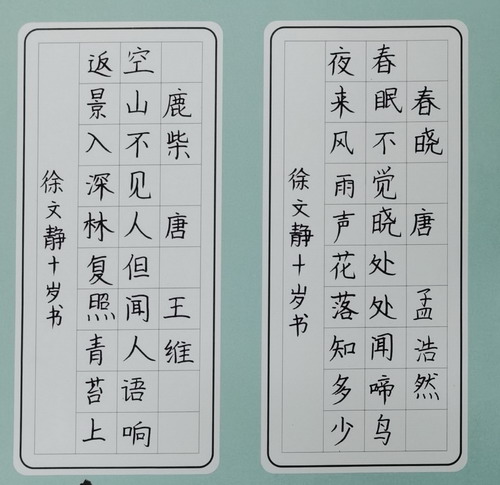 春晓 唐 孟浩然
春眠不觉晓处处闻啼鸟
夜来风雨声花落知多少
徐文静十岁书
鹿柴 唐 王维
空山不见人但闻人语响
返景入深林复照青苔上
徐文静十岁书